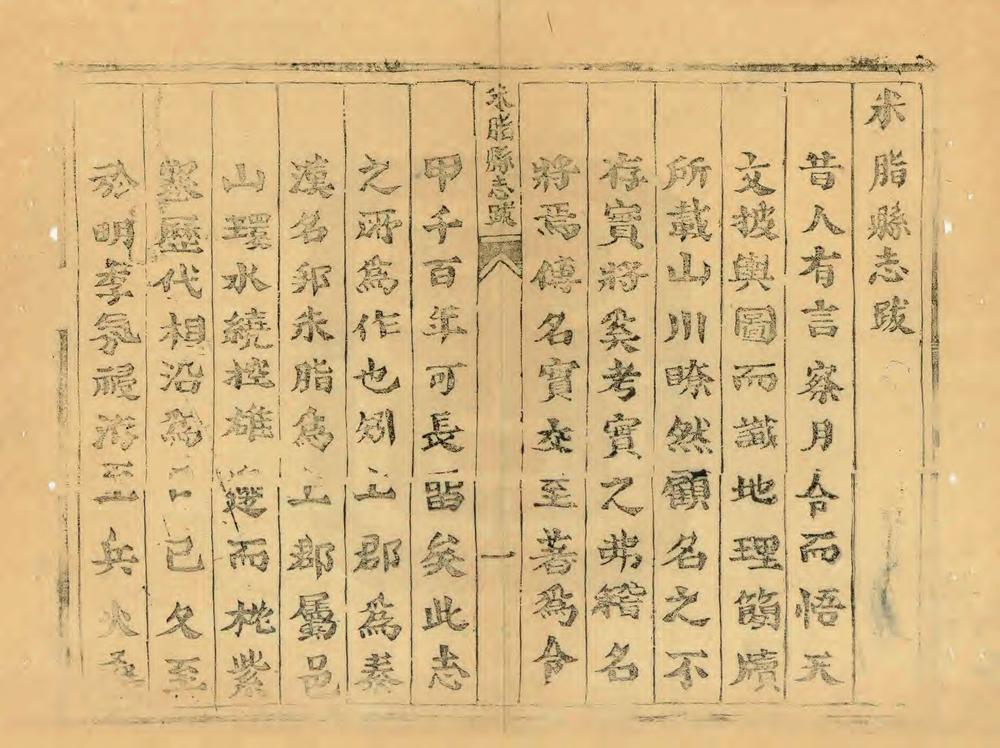 米脂縣志跋
昔人有言察月令而悟天
文披輿圖而識地理簡牘
所載山川瞭然顧名之不
存實將奚考實之弗稽名
將焉傳名實交至著為令
米脂縣志跋
一
甲千百年可長留矣此志
之所為作也矧上郡為秦
漢名邦米脂為上郡屬邑
山環水繞控雄邊而枕紫
塞歷代相沿為已久至
於明季氛祲洊至兵火